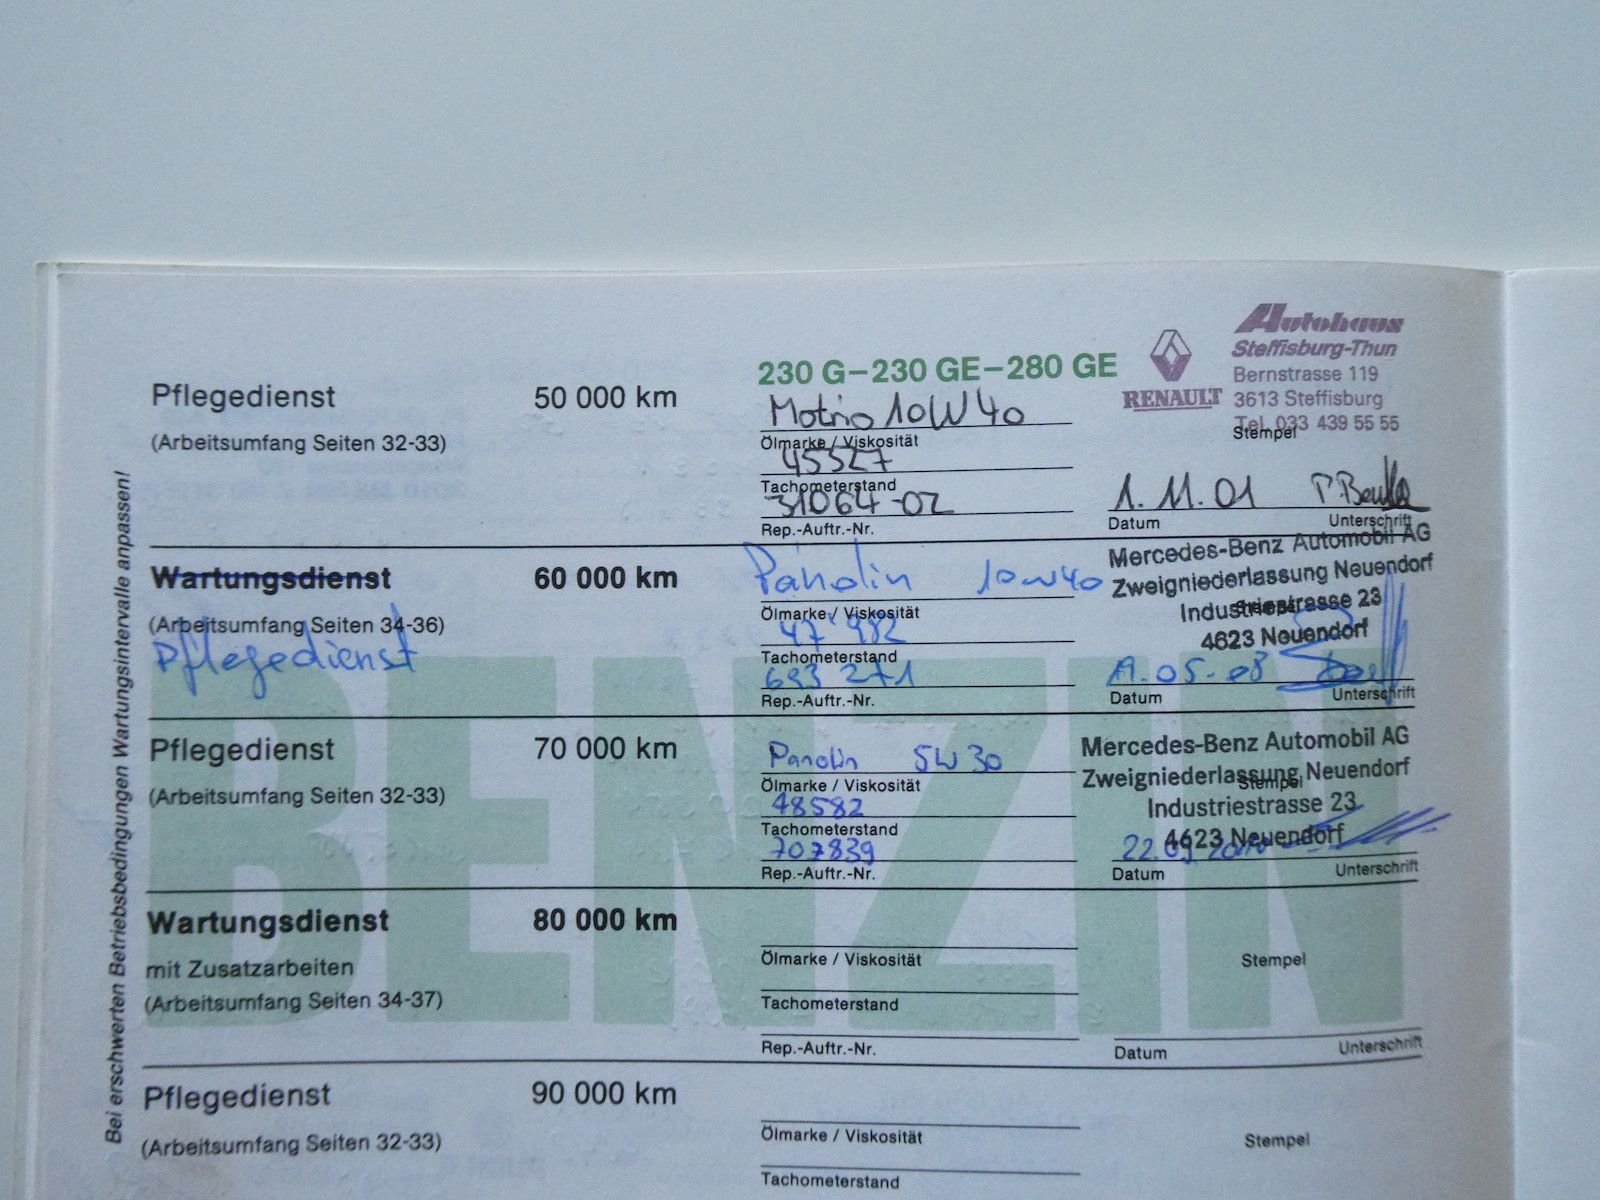 Bei erschwerten Betriebsbedingungen Wartungsintervalle anpassen!
230 G–230 GE–280 GE
RENAULT
Autohaus
Steffisburg-Thun
Bernstrasse 119
3613 Steffisburg
Tel. 033 439 55 55
Pflegedienst 50 000 km
(Arbeitsumfang Seiten 32-33)
Motrio 10W40
Ölmarke / Viskosität
Stempel
45527
Tachometerstand
31064-02
Rep.-Auftr.-Nr.
1.11.01
Datum Unterschrift
Wartungsdienst 60 000 km
(Arbeitsumfang Seiten 34-36)
Pflegedienst
Panolin 10W40
Ölmarke / Viskosität
47'982
Tachometerstand
693 271
Rep.-Auftr.-Nr.
Mercedes-Benz Automobil AG
Zweigniederlassung Neuendorf
Industriestrasse 23
Stempel
4623 Neuendorf
05-08
Datum Unterschrift
Pflegedienst 70 000 km
(Arbeitsumfang Seiten 32-33)
Panolin 5W30
Ölmarke / Viskosität
48582
Tachometerstand
707839
Rep.-Auftr.-Nr.
Mercedes-Benz Automobil AG
Zweigniederlassung Neuendorf
Stempel
Industriestrasse 23
4623 Neuendorf
Datum Unterschrift
BENZIN
Wartungsdienst 80 000 km
mit Zusatzarbeiten
(Arbeitsumfang Seiten 34-37)
Ölmarke / Viskosität
Stempel
Tachometerstand
Rep.-Auftr.-Nr.
Datum Unterschrift
Pflegedienst 90 000 km
(Arbeitsumfang Seiten 32-33)
Ölmarke / Viskosität
Stempel
Tachometerstand